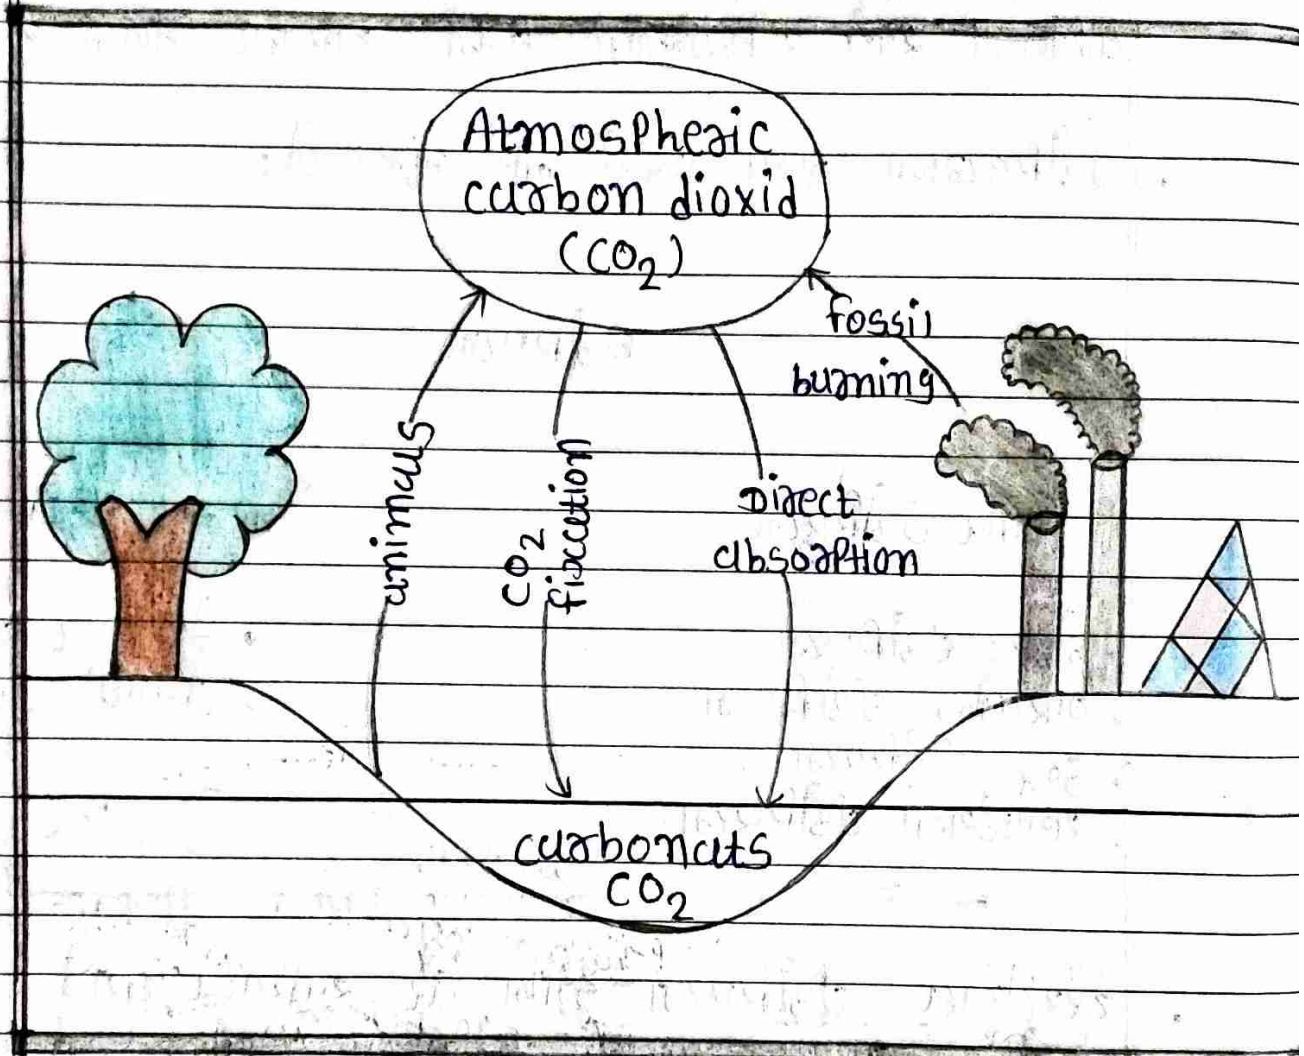 Atmospheric
carbon dioxid
(CO2)
fossil
burning
animals
CO2
fixaction
Direct
absorption
carbonats
CO2